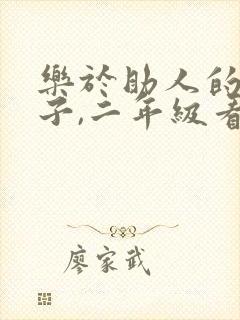 樂於助人的
子,二年級看
廖家武